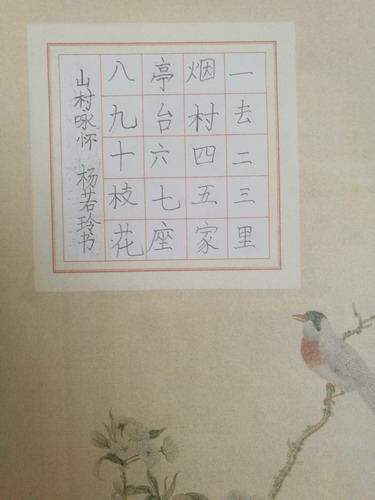 一去二三里
烟村四五家
亭台六七座
八九十枝花
山村咏怀 杨若玲书